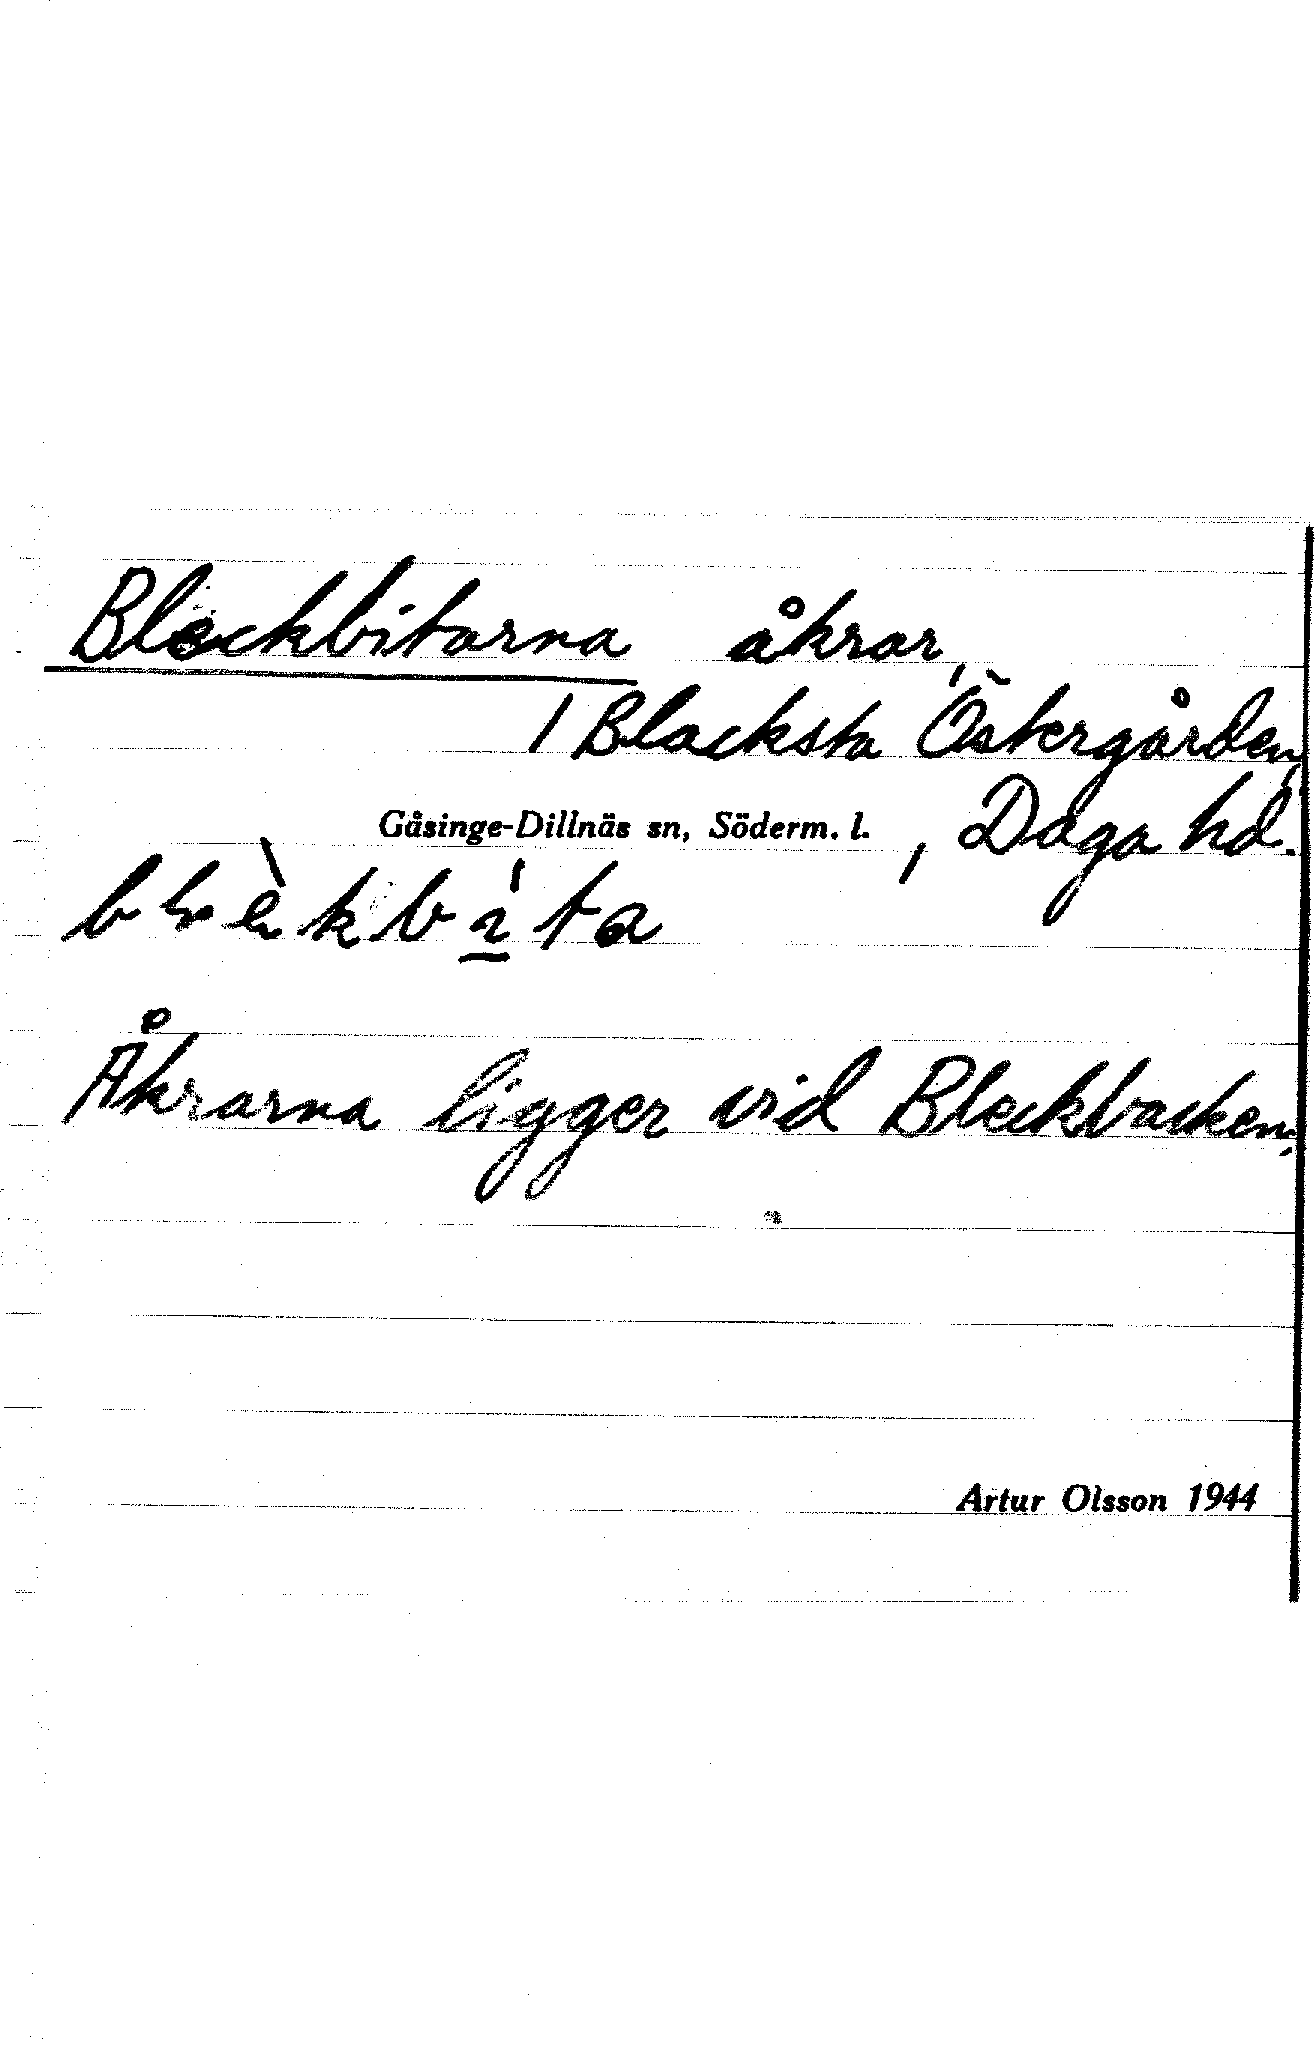 Bleckbitarna åkrar,
/ Blacksta Östergården,
Gåsinge-Dillnäs sn, Söderm. l. , Daga hd.
blèkbı́ta
Åkrarna ligger vid Bleckbacken.
Artur Olsson 1944